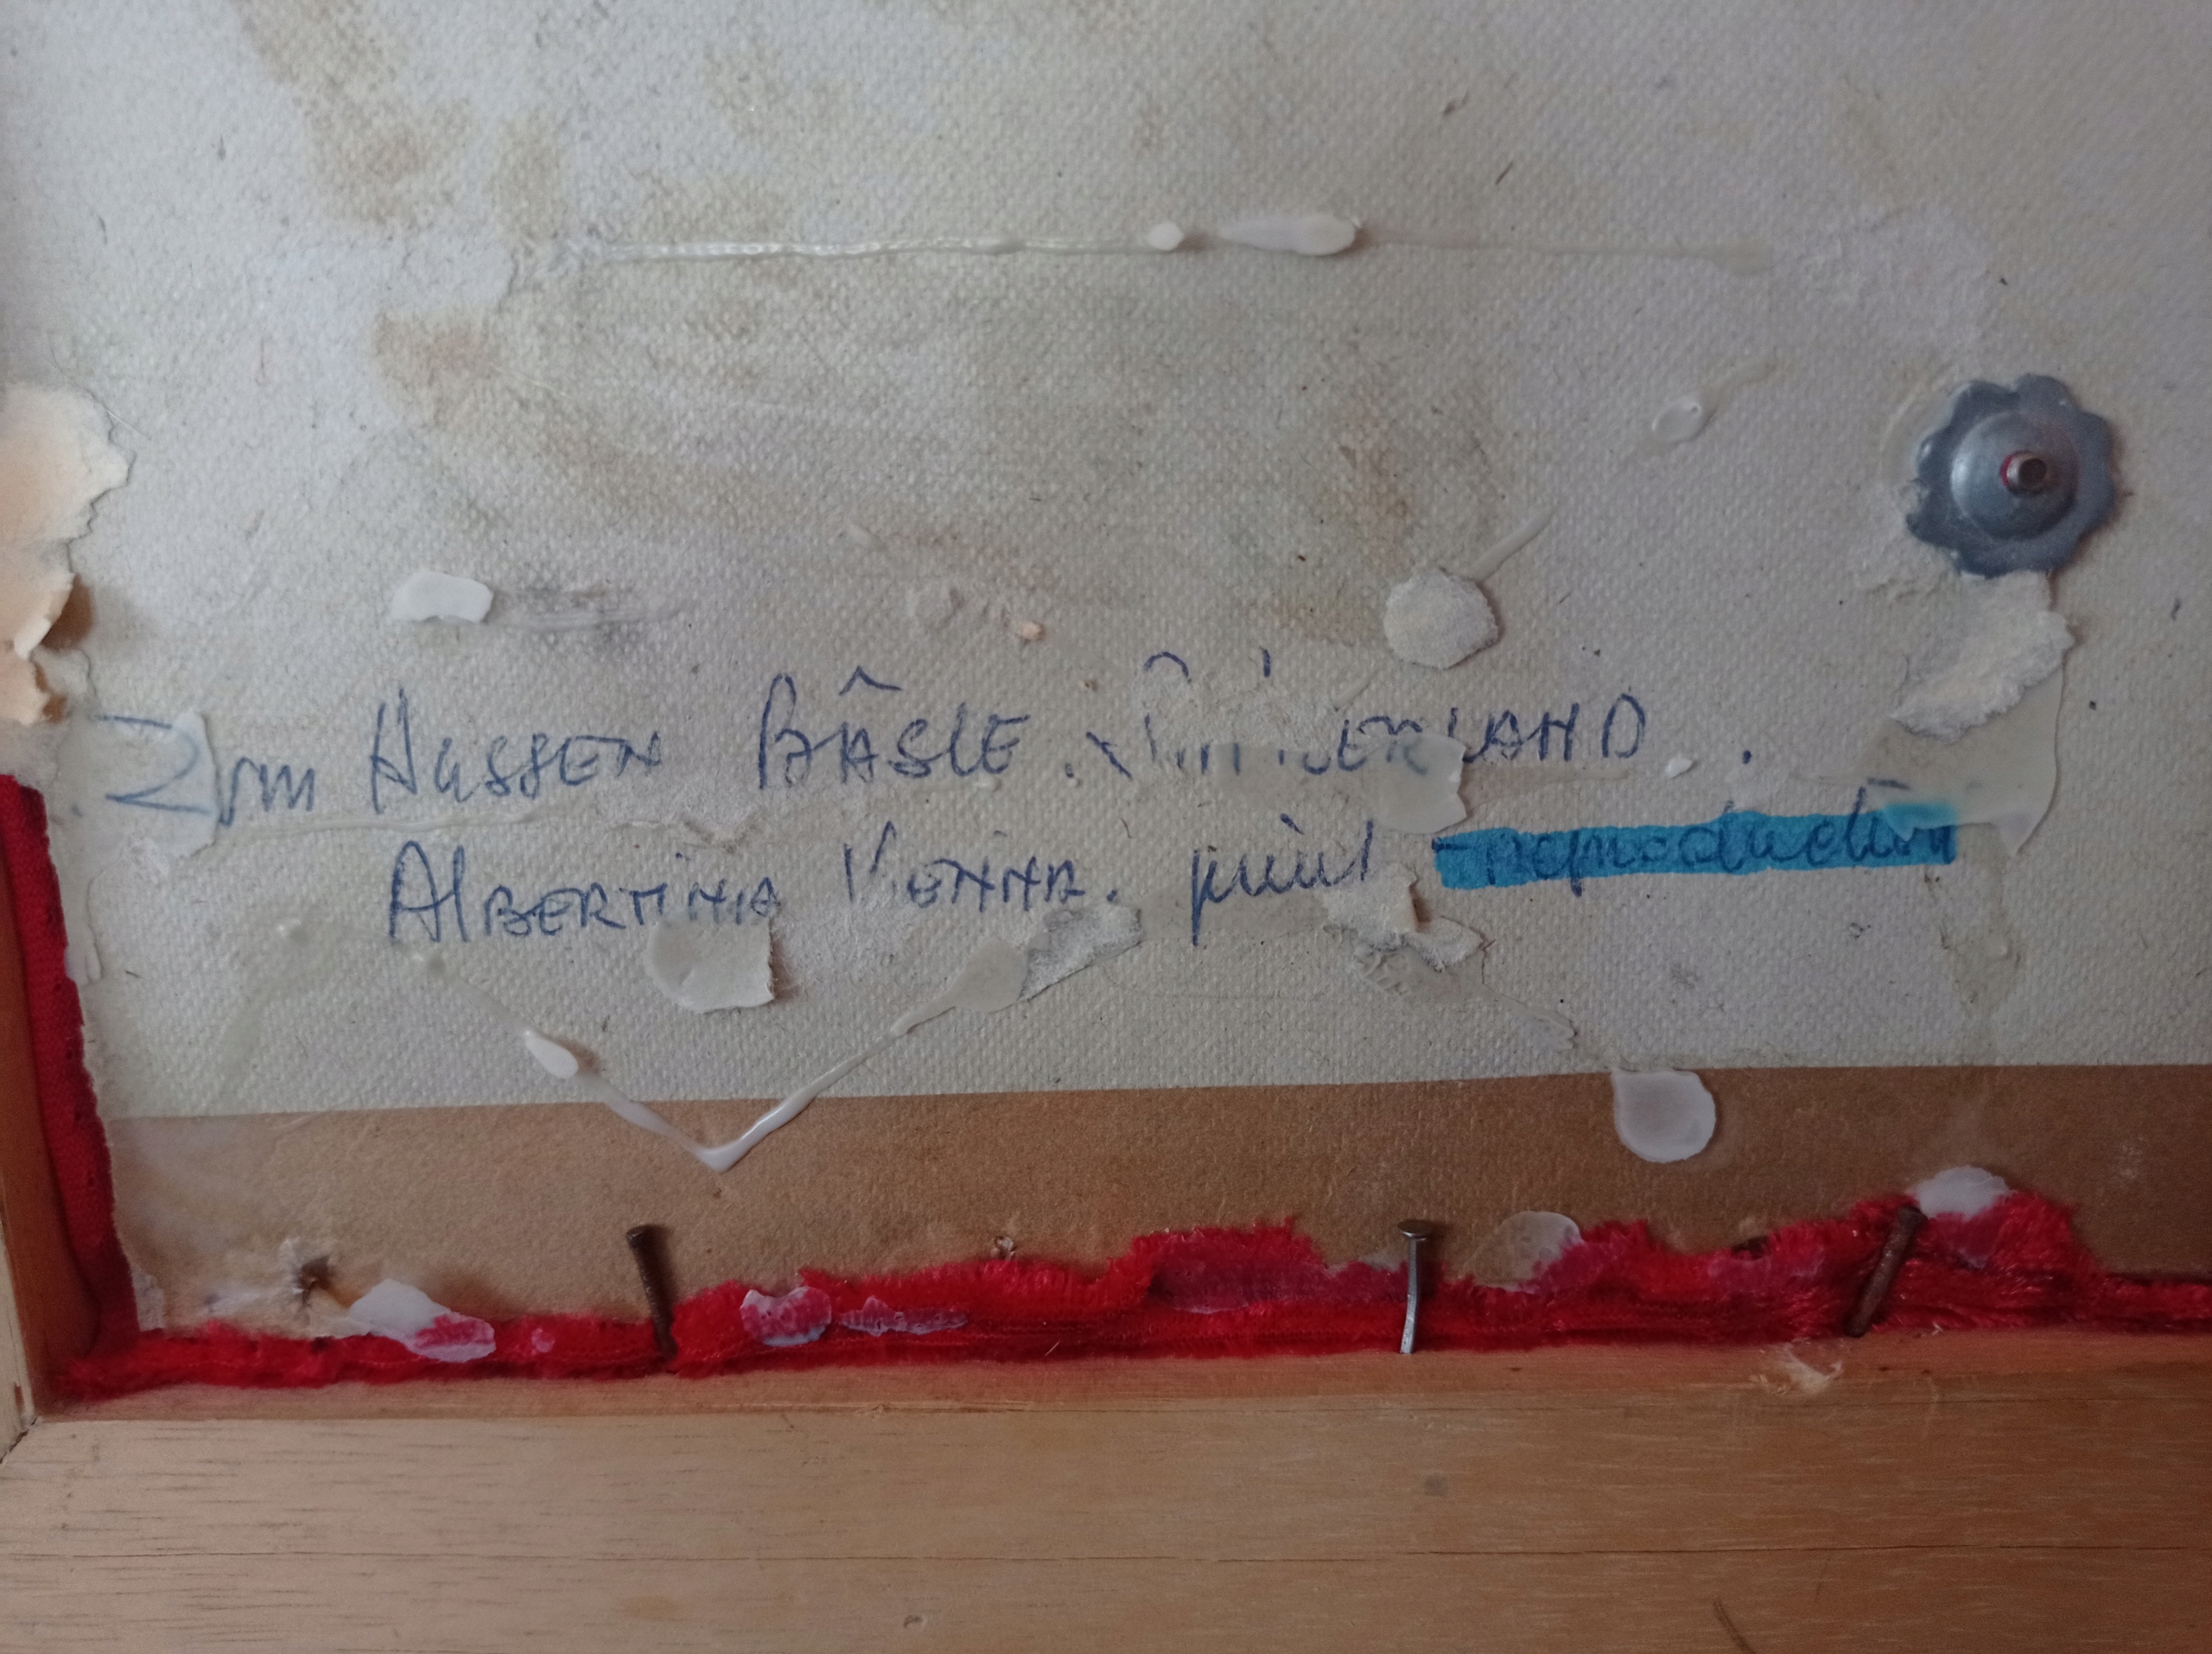 Zum Hussen BÂSLE. SWITZERLAND.
ALBERTINA VIENNA. print reproduction